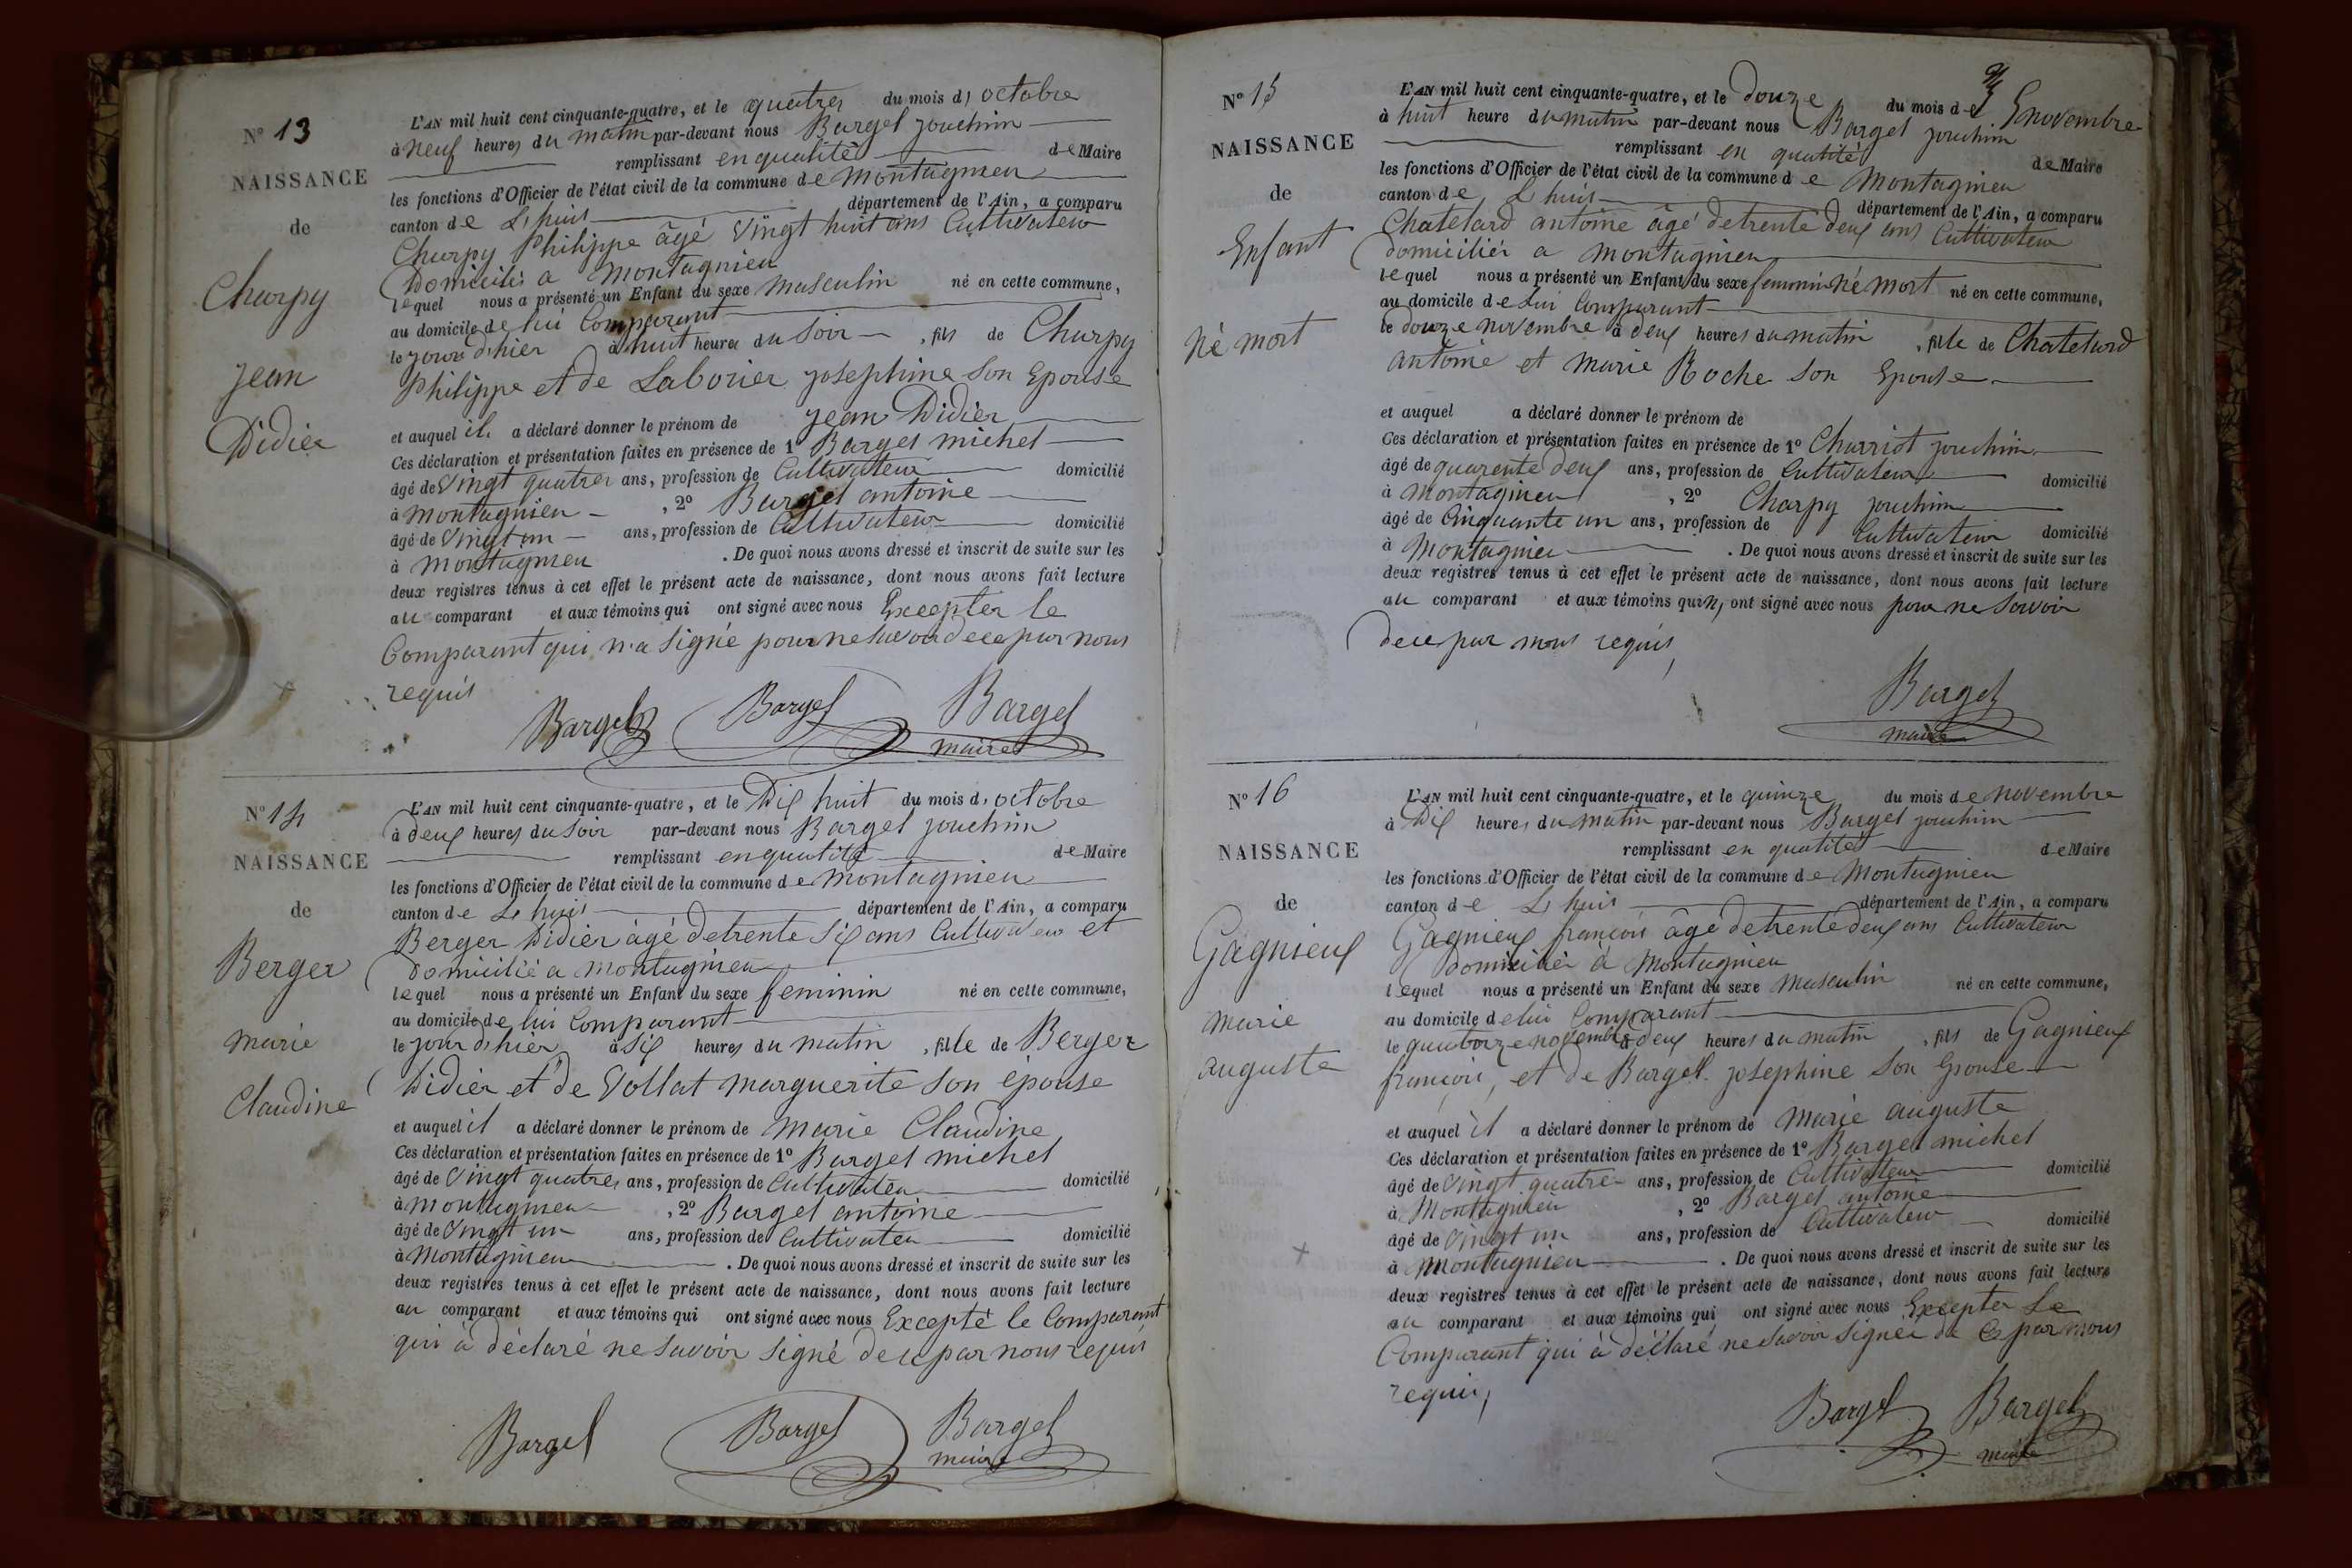 N° 13
NAISSANCE
de
Charpy
jean
Didier
L'AN mil huit cent cinquante-quatre, et le quatres du mois d, octobre
à neuf heures du matin par-devant nous Bargel jouchim
remplissant en qualités de Maire
les fonctions d'Officier de l'état civil de la commune de montagnieu
canton de L, huis département de l'Ain, a comparu
Charpy Philippe âgé vingt huit ans Cultivateur
Domicilié a montagnieu
lequel nous a présenté un Enfant du sexe masculin né en cette commune,
au domicile de lui Comparant
le jours d'hier à huit heures du soir , fils de Charpy
Philippe et de Laborier joséphine son Epouse
et auquel il a déclaré donner le prénom de jean Didier
Ces déclaration et présentation faites en présence de 1° Bargel michel
âgé de vingt quatres ans, profession de Cultivateur domicilié
à montagnieu , 2° Bargel antoine
âgé de vingt un ans, profession de Cultivateur domicilié
à montagnieu . De quoi nous avons dressé et inscrit de suite sur les
deux registres tenus à cet effet le présent acte de naissance, dont nous avons fait lecture
au comparant et aux témoins qui ont signé avec nous Excepter le
Comparant qui n'a signé pour ne savoir dece par nous
requis
Bargel Bargel Bargel
maire
N° 14
NAISSANCE
de
Berger
marie
Claudine
L'AN mil huit cent cinquante-quatre, et le Dix huit du mois d, octobre
à deux heures du soir par-devant nous Bargel jouchim
remplissant en qualité de Maire
les fonctions d'Officier de l'état civil de la commune de montagnieu
canton de L, huis département de l'Ain, a comparu
Berger Didier âgé de trente six ans Cultivateur et
domicilié a montagnieu
lequel nous a présenté un Enfant du sexe feminin né en cette commune,
au domicile de lui Comparant
le jour d'hier à six heures du matin , fille de Berger
Didier et de Vollat marguerite son épouse
et auquel il a déclaré donner le prénom de marie Claudine
Ces déclaration et présentation faites en présence de 1° Bargel michel
âgé de vingt quatres ans, profession de Cultivateur domicilié
à montagnieu , 2° Bargel antoine
âgé de vingt un ans, profession de Cultivateur domicilié
à montagnieu . De quoi nous avons dressé et inscrit de suite sur les
deux registres tenus à cet effet le présent acte de naissance, dont nous avons fait lecture
au comparant et aux témoins qui ont signé avec nous Excepté le Comparant
qui à déclaré ne savoir signé dece par nous requis
Bargel Bargel Bargel
maire
N° 15
NAISSANCE
de
Enfant
né mort
L'AN mil huit cent cinquante-quatre, et le douze du mois de novembre
à huit heure du matin par-devant nous Bargel jouchim
remplissant en qualité de Maire
les fonctions d'Officier de l'état civil de la commune de montagnieu
canton de L, huis département de l'Ain, a comparu
Chatelard antoine âgé de trente deux ans Cultivateur
domicilier a montagnieu
lequel nous a présenté un Enfant du sexe feminin né mort né en cette commune,
au domicile de lui Comparant
le douze novembre à deux heures du matin , fille de Chatelard
antoine et marie Roche son Epouse
et auquel a déclaré donner le prénom de
Ces déclaration et présentation faites en présence de 1° Charriot jouchim
âgé de quarente deux ans, profession de Cultivateur domicilié
à montagnieu , 2° Charpy jouchim
âgé de Cinquante un ans, profession de Cultivateur domicilié
à montagnieu . De quoi nous avons dressé et inscrit de suite sur les
deux registres tenus à cet effet le présent acte de naissance, dont nous avons fait lecture
au comparant et aux témoins qui n, ont signé avec nous pour ne savoir
dece par nous requis
Bargel
maire
N° 16
NAISSANCE
de
Gagnieux
marie
auguste
L'AN mil huit cent cinquante-quatre, et le quinze du mois de novembre
à Dix heures du matin par-devant nous Bargel jouchim
remplissant en qualité de Maire
les fonctions d'Officier de l'état civil de la commune de montagnieu
canton de L, huis département de l'Ain, a comparu
Gagnieux françois âgé de trente deux ans Cultivateur
domicilier à Montagnieu
lequel nous a présenté un Enfant du sexe masculin né en cette commune,
au domicile de lui Comparant
le quatorze novembre à deux heures du matin , fils de Gagnieux
françois, et de Bargel josephine son Epouse
et auquel il a déclaré donner le prénom de marie auguste
Ces déclaration et présentation faites en présence de 1° Bargel michel
âgé de vingt quatre ans, profession de Cultivateur domicilié
à Montagnieu , 2° Bargel antoine
âgé de vingt un ans, profession de Cultivateur domicilié
à Montagnieu . De quoi nous avons dressé et inscrit de suite sur les
deux registres tenus à cet effet le présent acte de naissance, dont nous avons fait lecture
au comparant et aux témoins qui ont signé avec nous Excepter Le
Comparant qui à déclaré ne savoir signér de Ce par nous
requis,
Bargel Bargel
maire